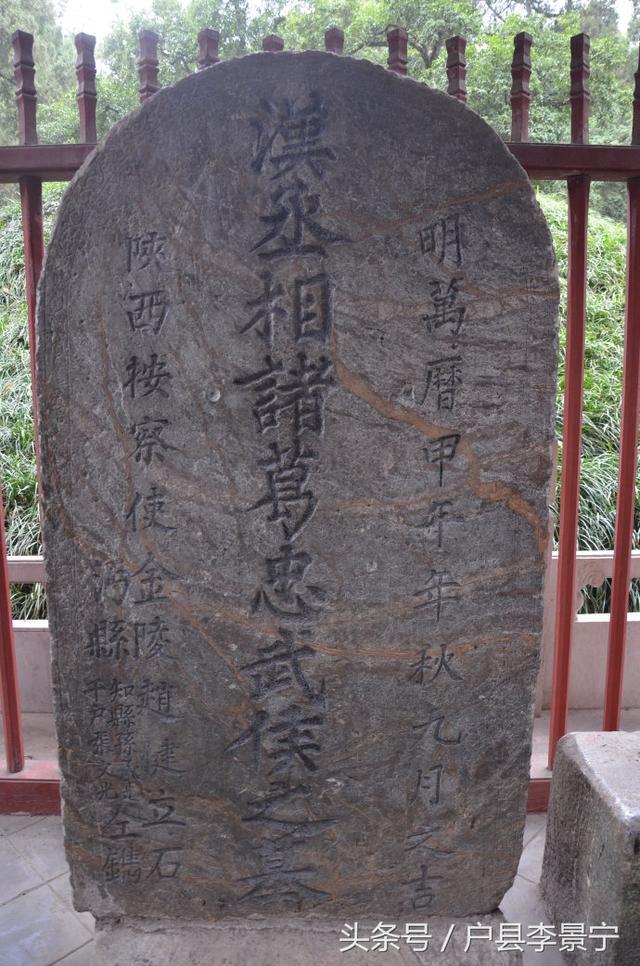 明萬曆甲午年秋九月之吉
漢丞相諸葛忠武侯之墓
陝西按察使金陵趙健立石
沔縣
知縣孫
千戶張文光
仝鐫
头条号 / 户县李景宁